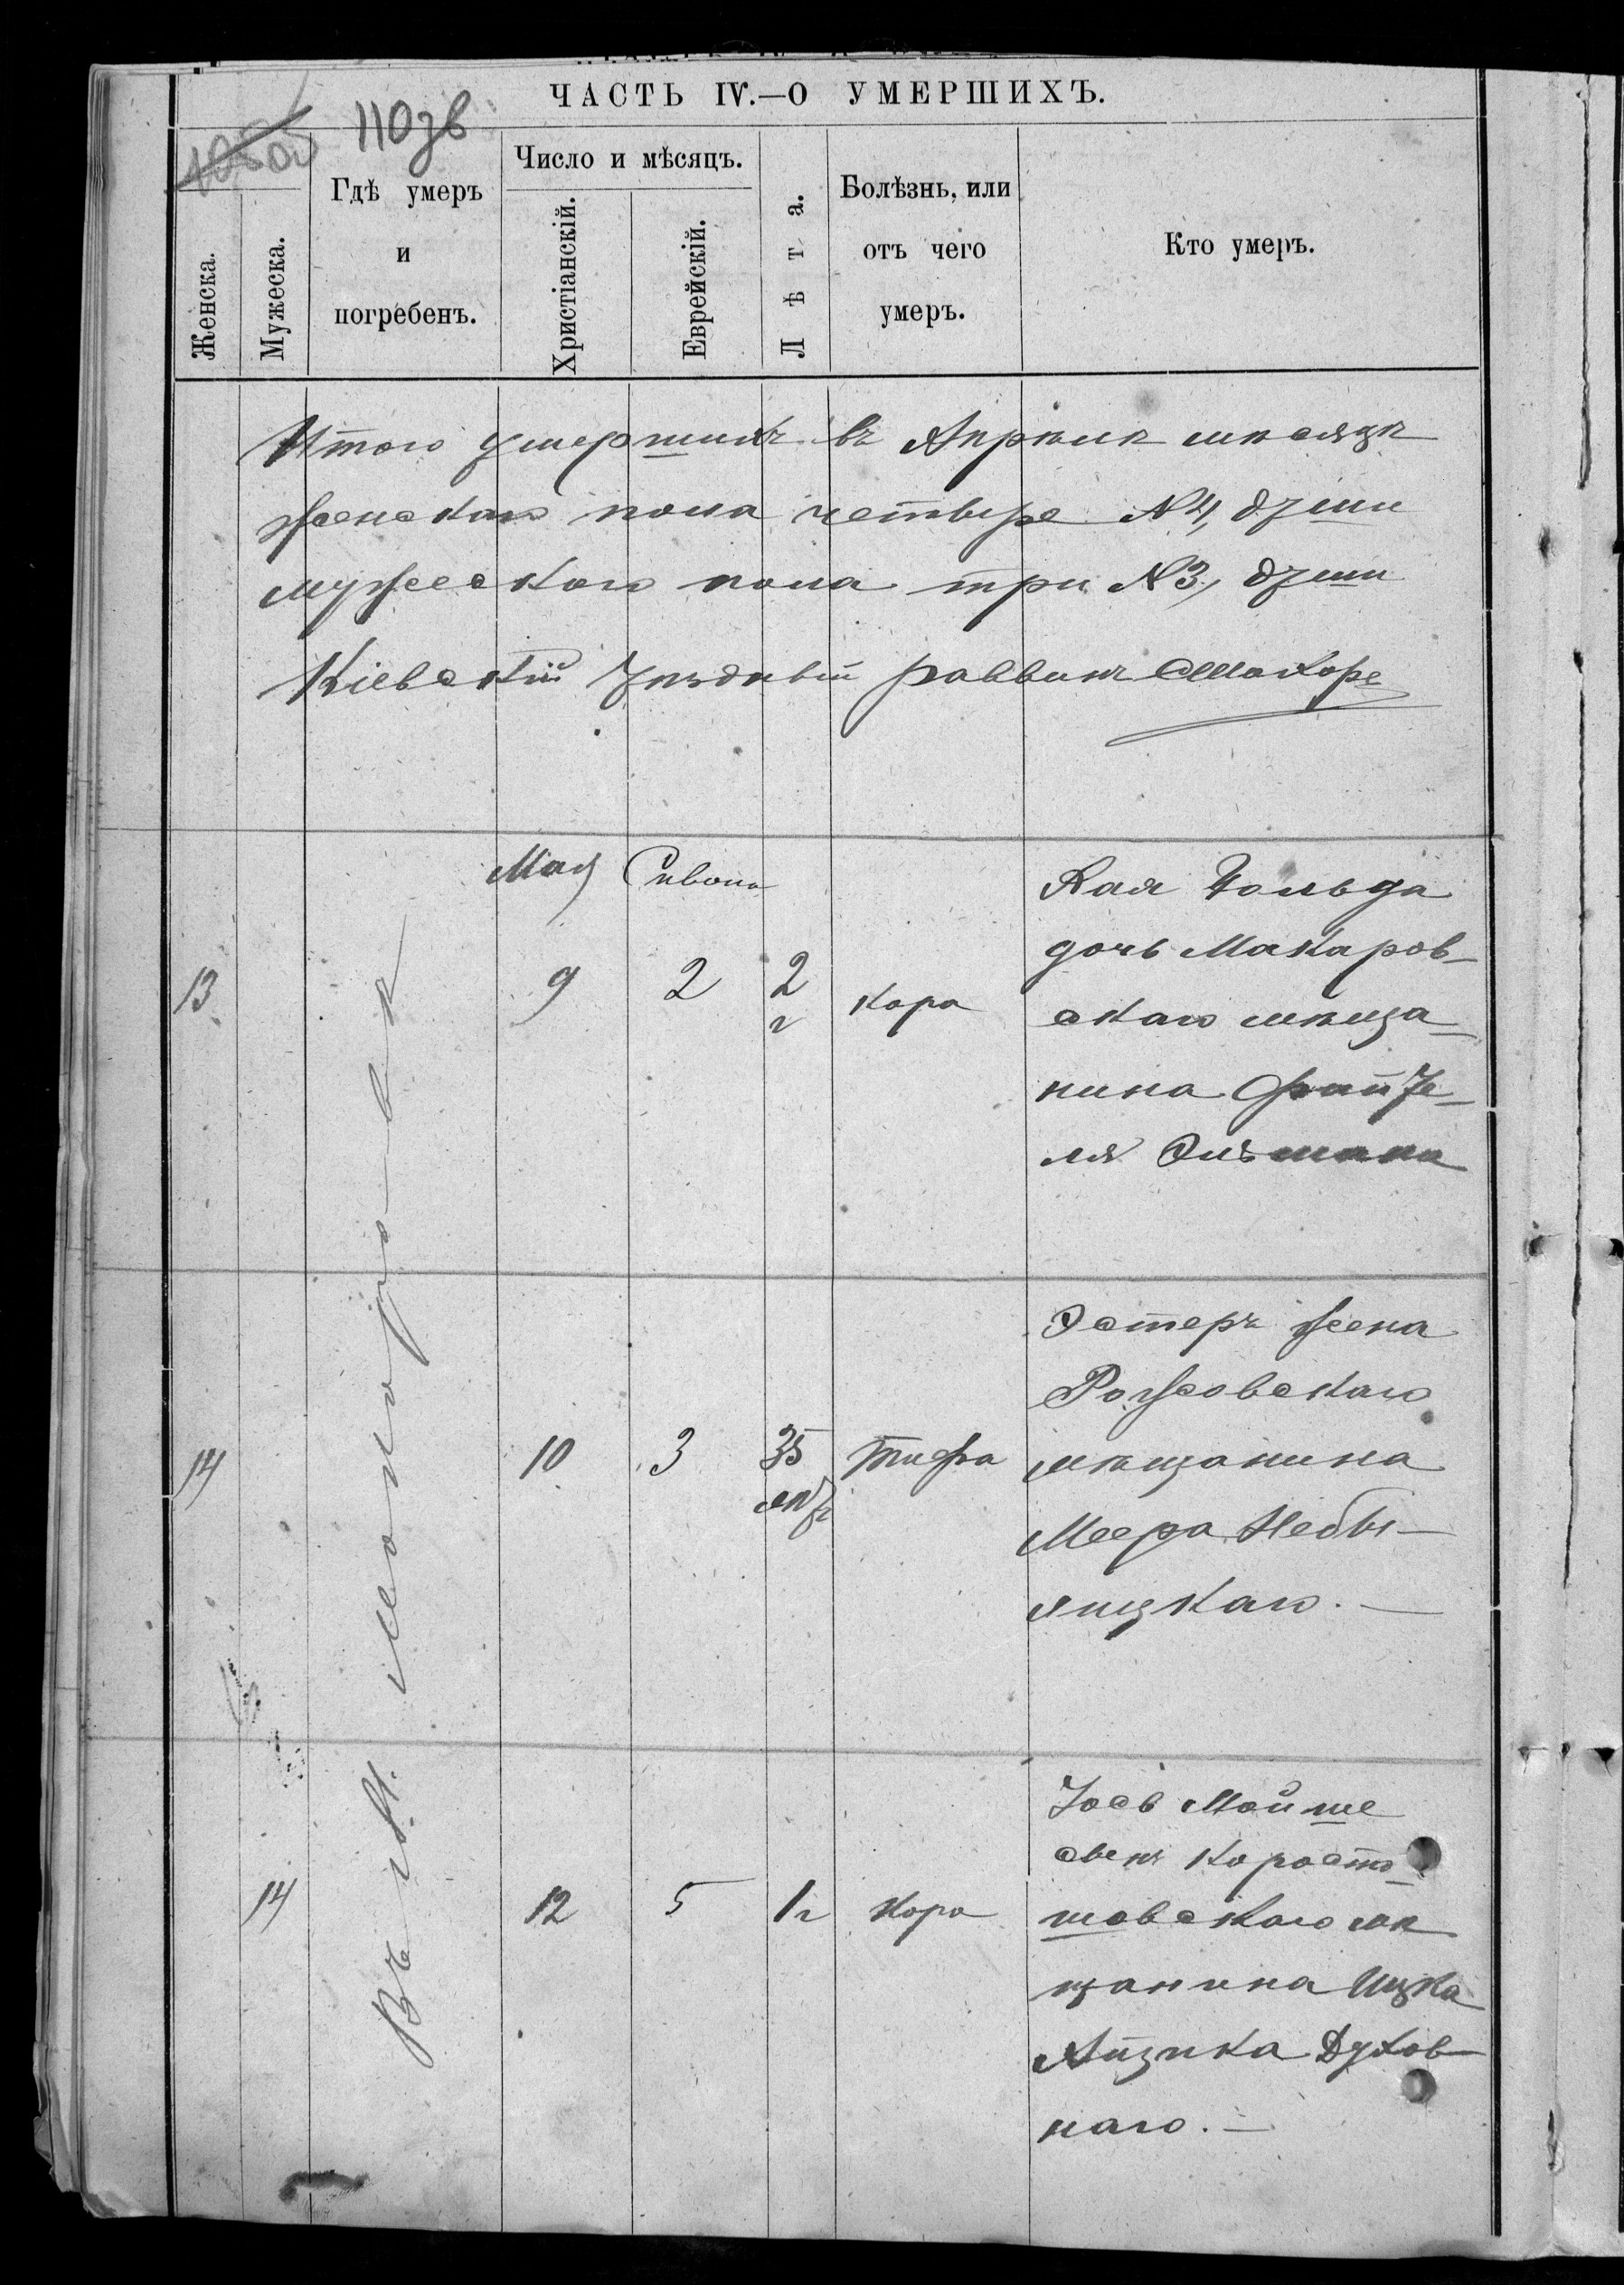 ЧАСТЬ IV.—О УМЕРШИХЪ.
110зв
Женска.
Мужеска.
Гдѣ умеръ
и
погребенъ.
Число и мѣсяцъ.
Христіанскій.
Еврейскій.
Лѣта.
Болѣзнь, или
отъ чего
умеръ.
Кто умеръ.
Итого умершихъ въ Апрѣлѣ мѣсяцѣ
женскаго пола четвере №4, души
мужескаго пола три №3, души
Кіевскій Уѣздный раввинъ
Въ М. Макаровѣ
Мая Сивона
13
9
2
2
г
кора
Хая Гольда
дочь Макаров-
скаго мѣща-
нина Файве-
ля
14
10
3
35
лѣтъ
тифа
Эстеръ жена
Рожовскаго
мѣщанина
Меера Небы-
лицкаго.—
14
12
5
1 г
кора
Іось Мойше
сынъ Корост
шовскаго мѣ
щанина Ицка
Айзика Духов
наго.—